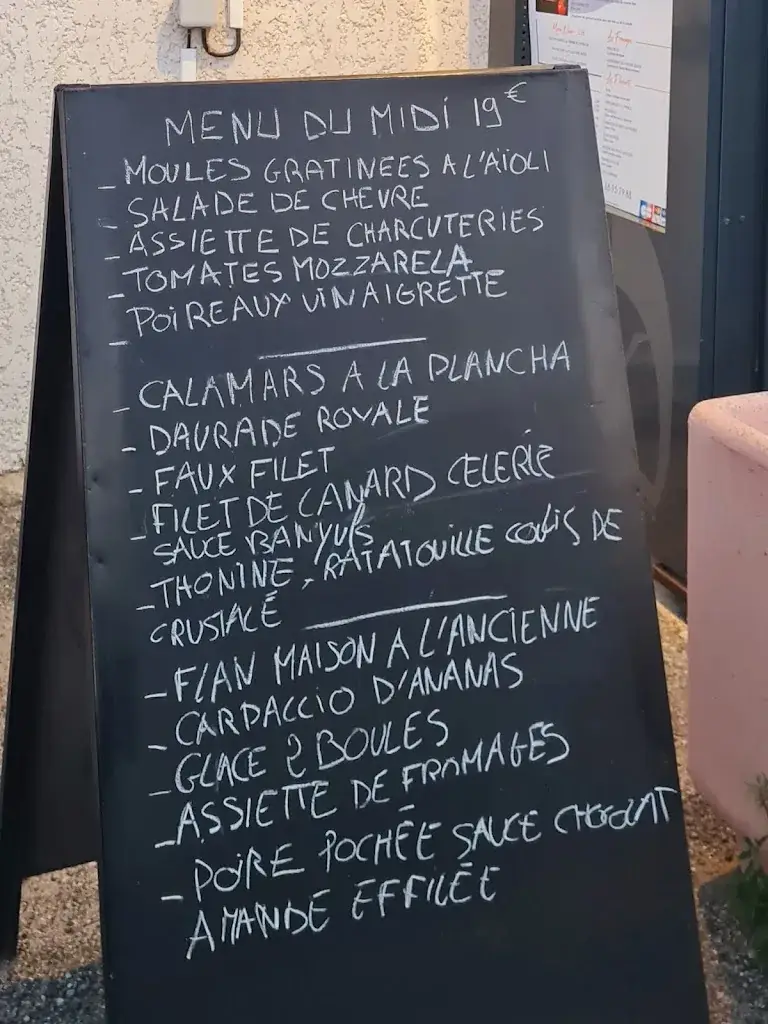 MENU DU MIDI 19€
- MOULES GRATINEES A L'AÏOLI
- SALADE DE CHEVRE
- ASSIETTE DE CHARCUTERIES
- TOMATES MOZZARELA
- POIREAUX VINAIGRETTE
- CALAMARS A LA PLANCHA
- DAURADE ROYALE
- FAUX FILET
- FILET DE CANARD CELERIE
SAUCE BANYULS
- THONINE, RATATOUILLE COULIS DE
CRUSTACÉ
- FLAN MAISON A L'ANCIENNE
- CARPACCIO D'ANANAS
- GLACE 2 BOULES
- ASSIETTE DE FROMAGES
- POIRE POCHÉE SAUCE CHOCOLAT
AMANDE EFFILÉE